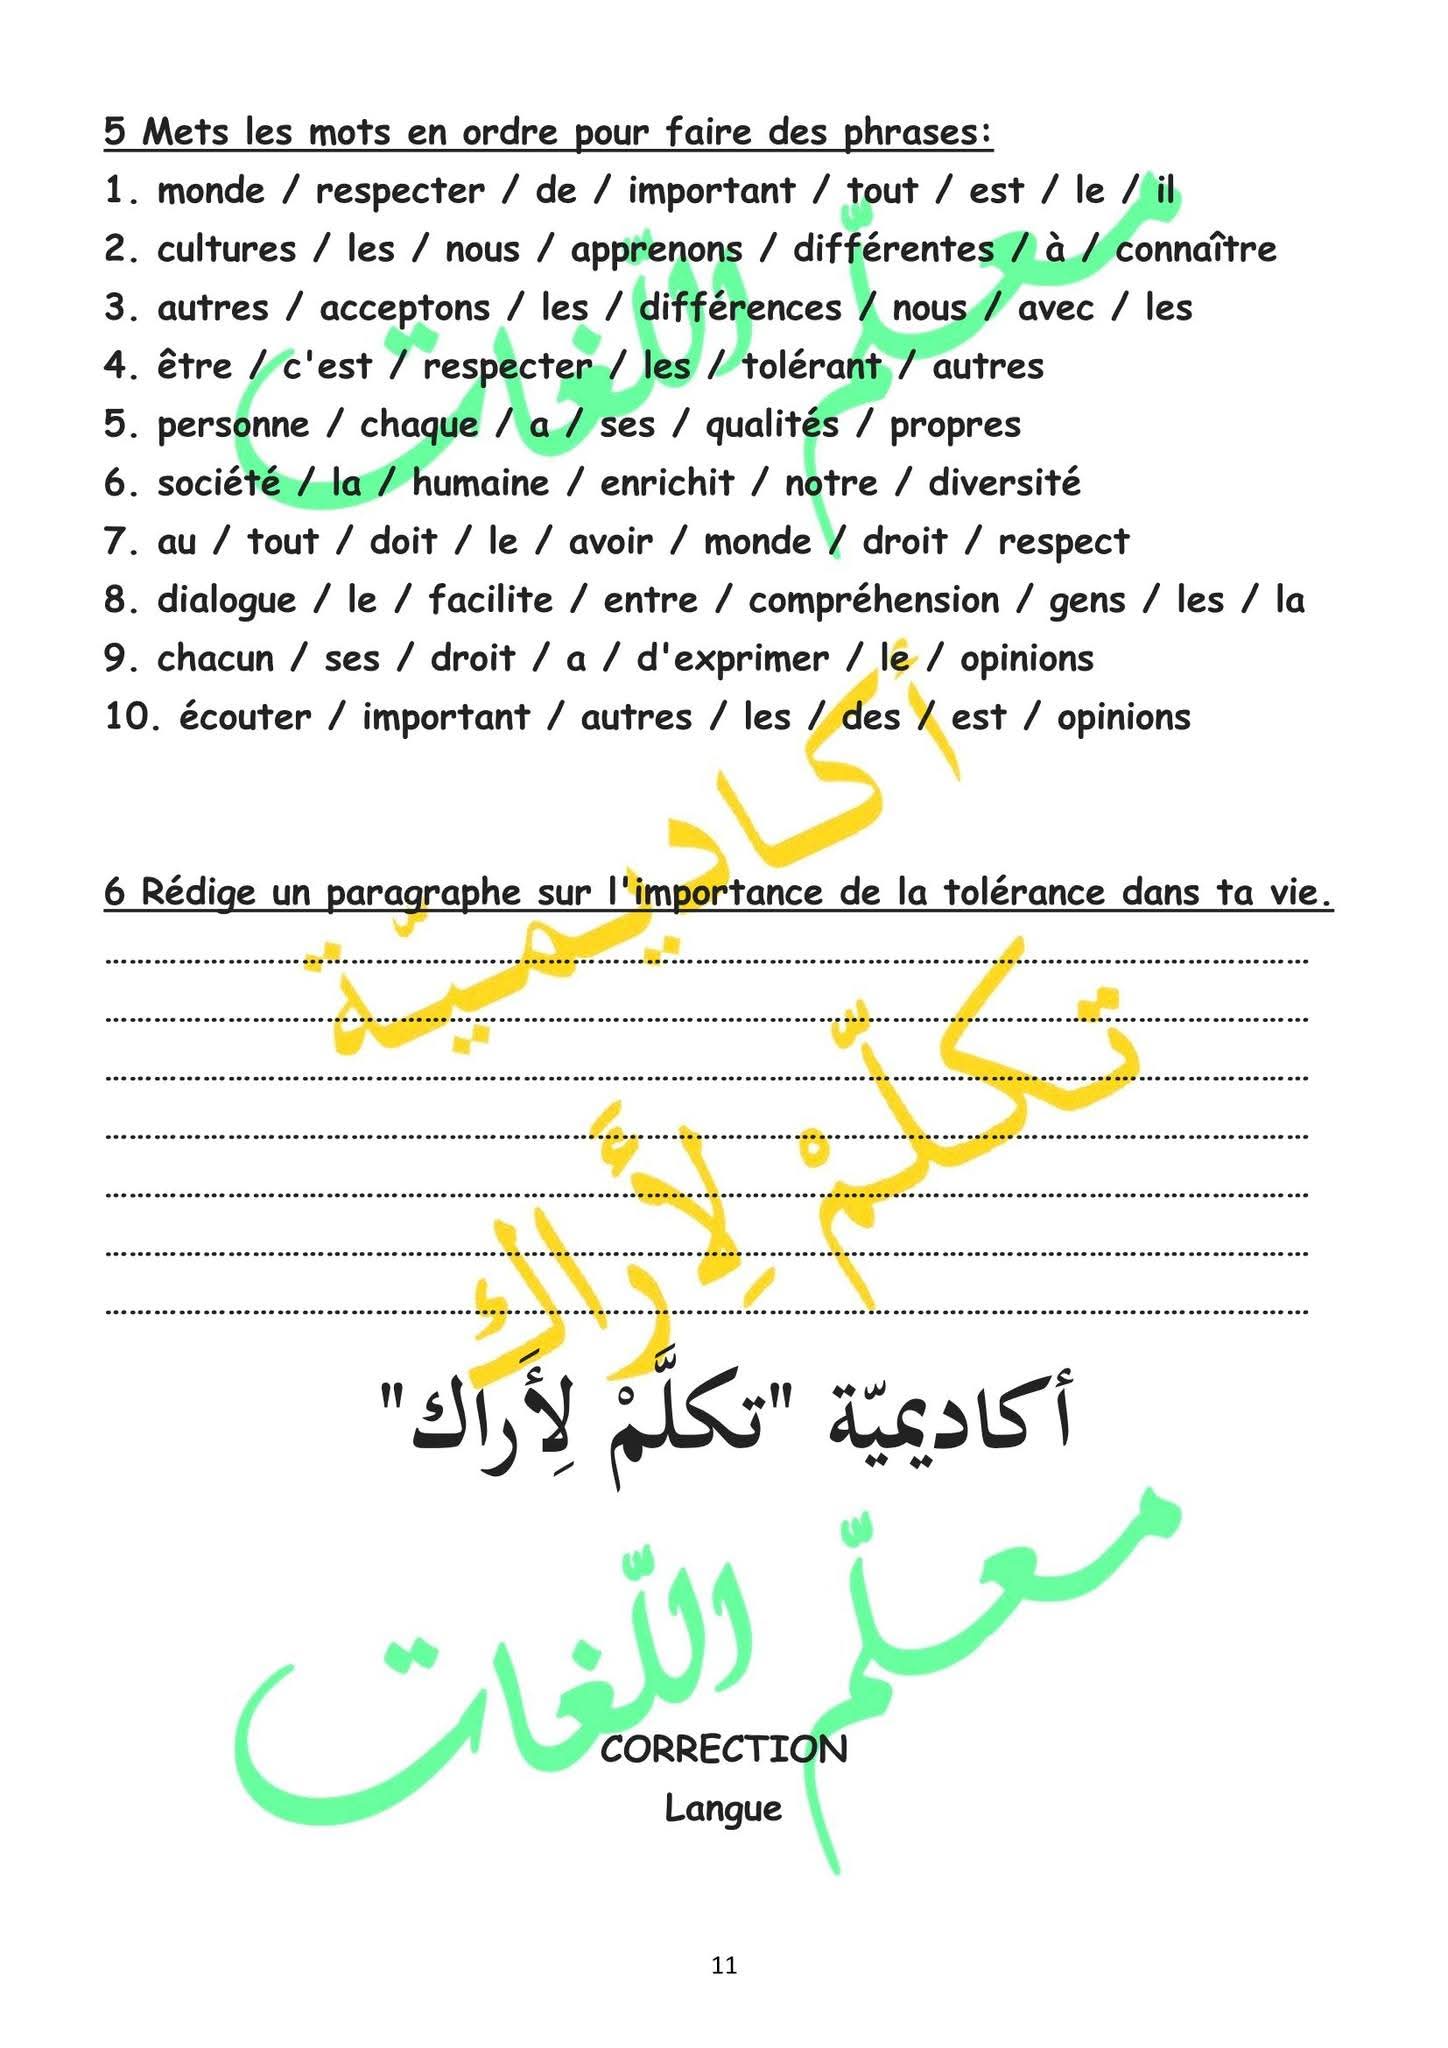 5 Mets les mots en ordre pour faire des phrases:
1. monde / respecter / de / important / tout / est / le / il
2. cultures / les / nous / apprenons / différentes / à / connaître
3. autres / acceptons / les / différences / nous / avec / les
4. être / c'est / respecter / les / tolérant / autres
5. personne / chaque / a / ses / qualités / propres
6. société / la / humaine / enrichit / notre / diversité
7. au / tout / doit / le / avoir / monde / droit / respect
8. dialogue / le / facilite / entre / compréhension / gens / les / la
9. chacun / ses / droit / a / d'exprimer / le / opinions
10. écouter / important / autres / les / des / est / opinions
معلّم اللّغات
6 Rédige un paragraphe sur l'importance de la tolérance dans ta vie.
أكاديميّة
تكلّمْ لِأَراكَ
أكاديميّة "تكلَّمْ لِأَراك"
معلّم اللّغات
CORRECTION
Langue
11